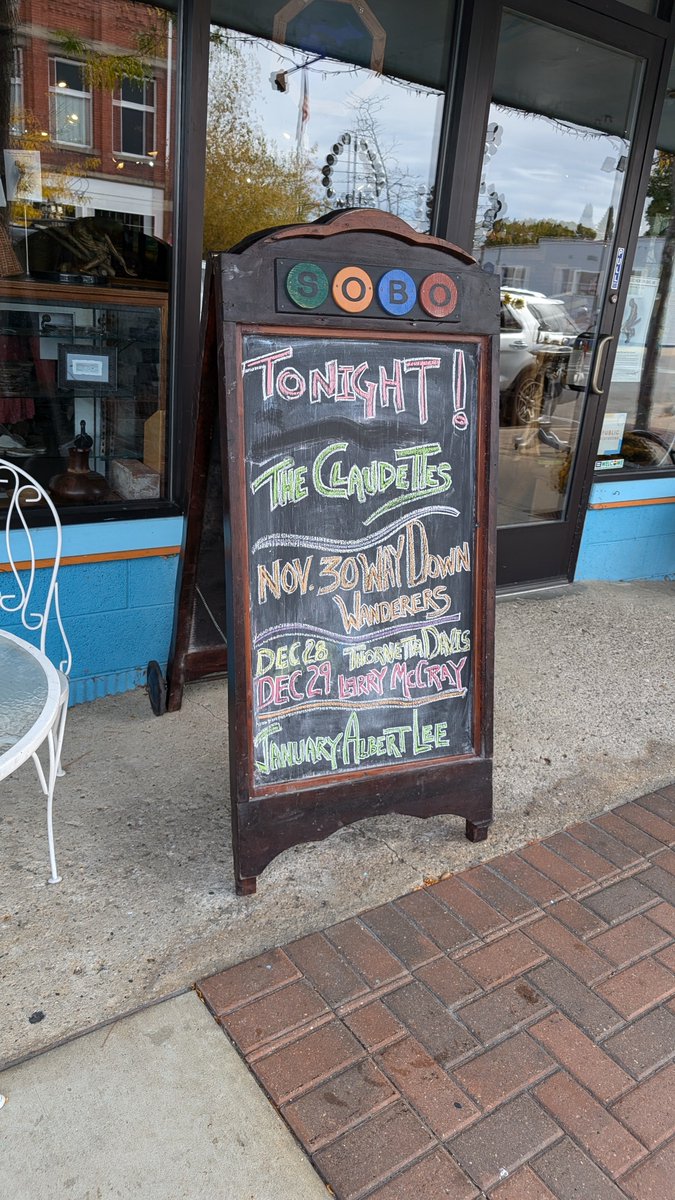 SOBO
TONIGHT!
THE CLAUDETTES
NOV. 30 WAY DOWN
WANDERERS
DEC 28 THORNETTA DAVIS
DEC 29 LARRY MCCRAY
JANUARY. ALBERT LEE
PUBLIC